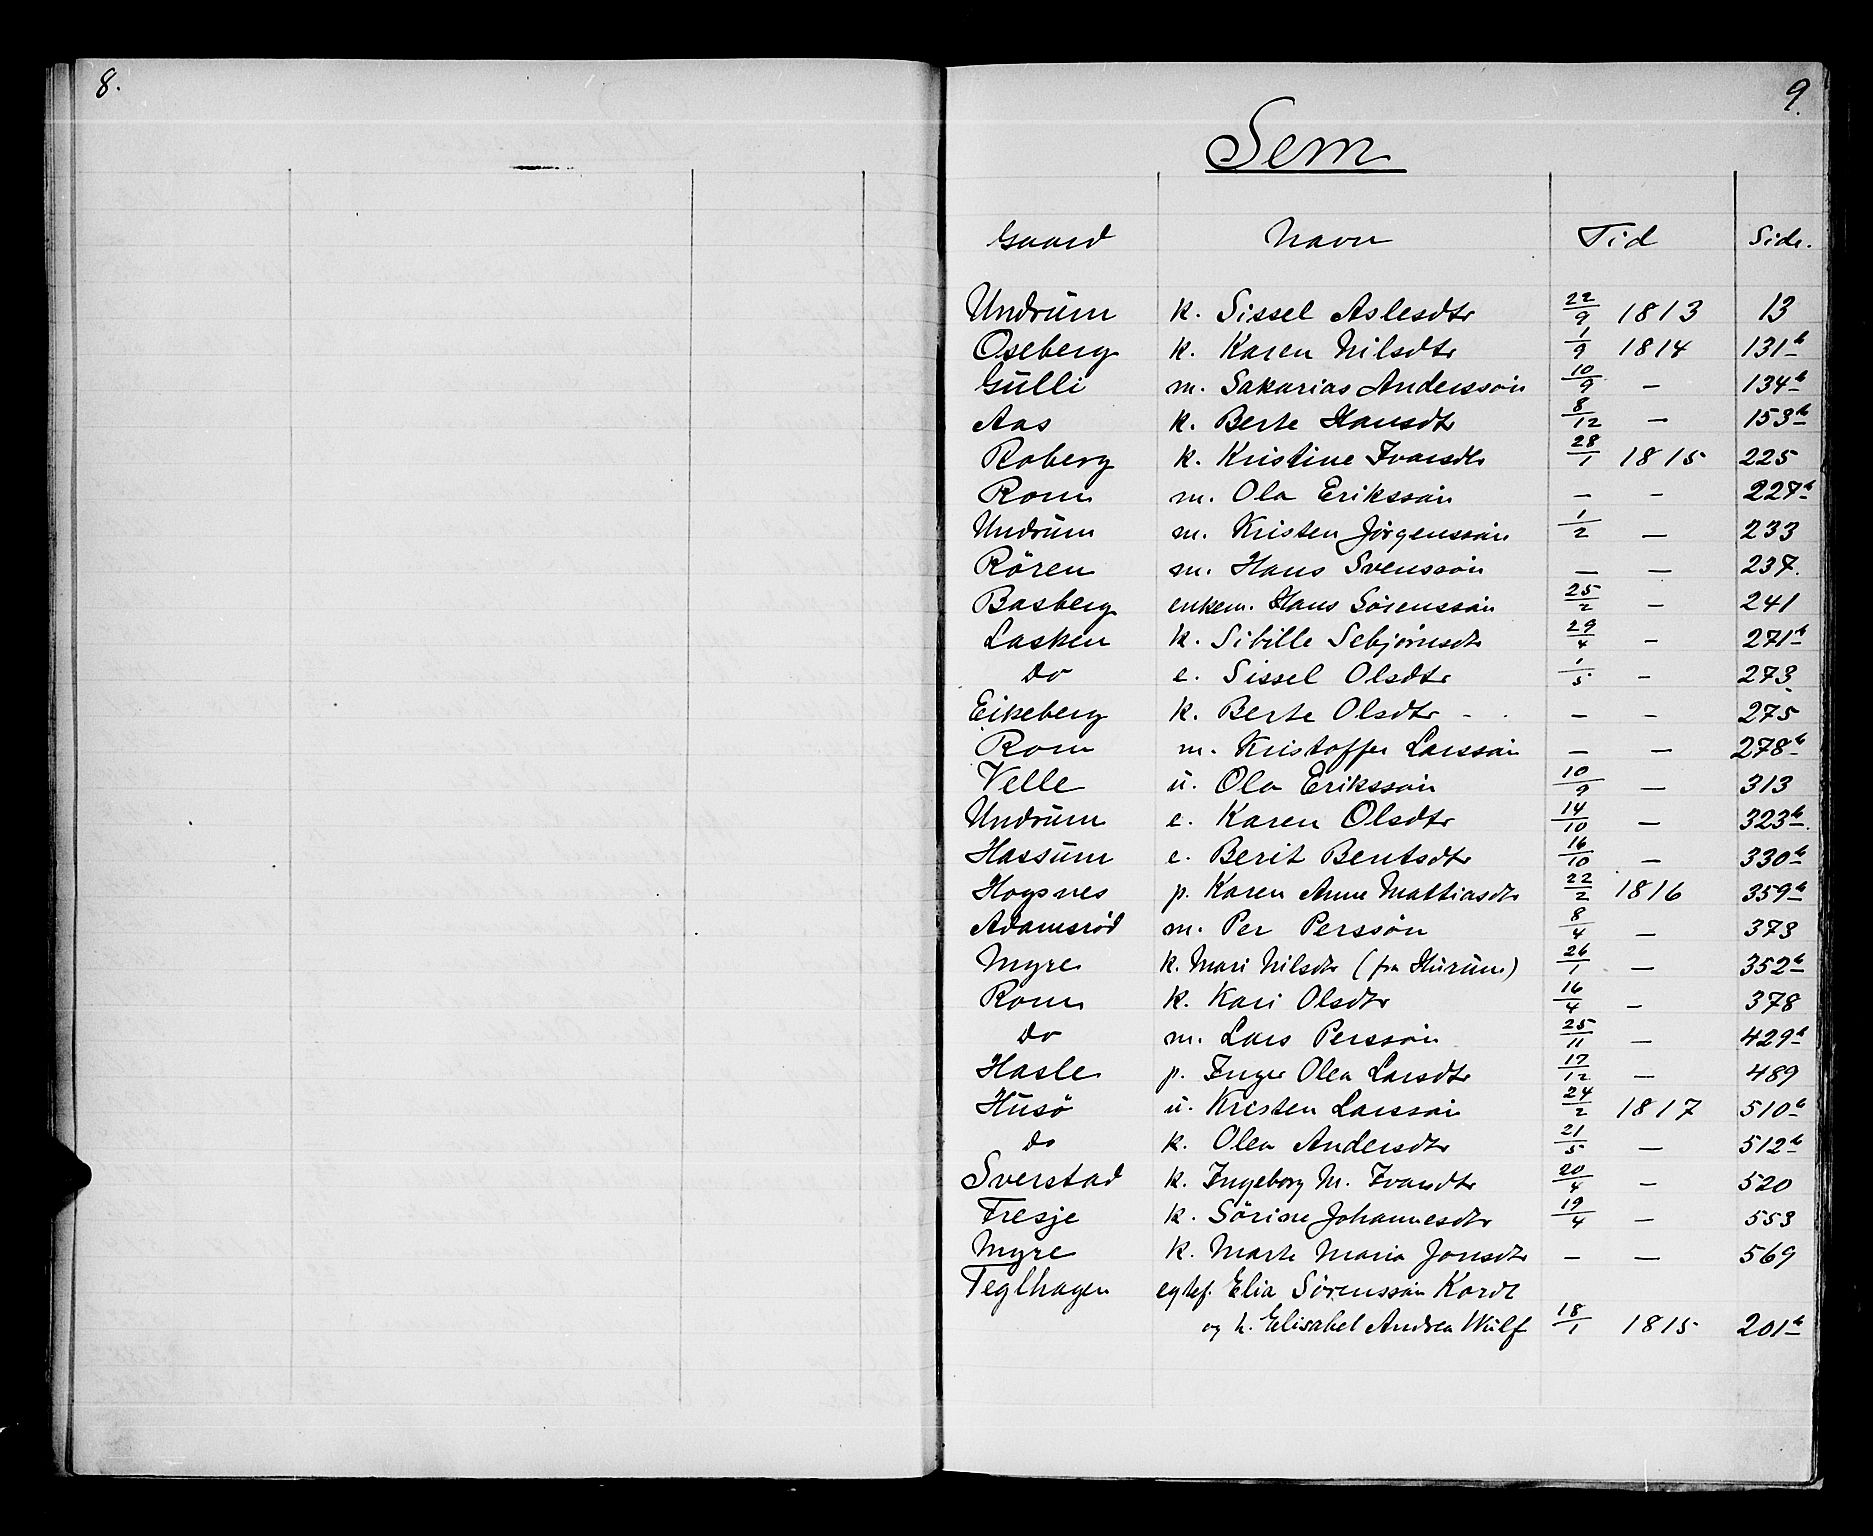 8.
9.
Sem
Gaard Navn Tid Side.
Undrum k. Sissel Aslesdtr 22/9 1813 13
Oseberg k. Karen Nilsdtr 1/9 1814 131b
Gulli m. Sakarias Anderssøn 10/9 – 134b
Aas k. Berte Hansdtr 8/12 – 153b
Roberg k. Kristine Ivarsdtr 28/1 1815 225
Rom m. Ola Erikssøn – – 227b
Undrum m. Kristen Jørgenssøn 1/2 – 233
Rören m. Hans Svenssøn – – 237.
Basberg enkem. Hans Sørenssøn 25/2 – 241
Lasken k. Sibille Sebjørnsdtr 29/4 – 271b
do e. Sissel Olsdtr 1/5 – 273
Eikeberg k. Berte Olsdtr – – 275
Rom m. Kristoffer Larssøn – – 278b
Velle u. Ola Erikssøn 10/9 – 313
Undrum e. Karen Olsdtr 14/10 – 323b
Hassum e. Berit Bentsdtr 16/10 – 330b
Hogsnes p. Karen Anne Mattiasdtr 22/2 1816 359b
Adamsrød m. Per Perssøn 8/4 – 373
Myre k. Mari Nilsdtr (fra Hurum) 26/1 – 352b
Rom k. Kari Olsdtr 16/4 – 378
do m. Lars Perssøn 25/11 – 429b
Hasle p. Inger Olea Larsdtr 17/12 – 489
Husö u. Kristen Larssøn 24/2 1817 510b
do k. Olea Andersdtr 21/5 – 512b
Sverstad k. Ingeborg M. Ivarsdtr 20/4 – 520
Fresje k. Sörine Johannesdtr 19/4 – 553
Myre k. Marte Maria Jonsdtr – – 569
Teglhagen egtef. Elia Sørenssøn Kordt
og h. Elisabet Andrea Wulf 18/1 1815 201b